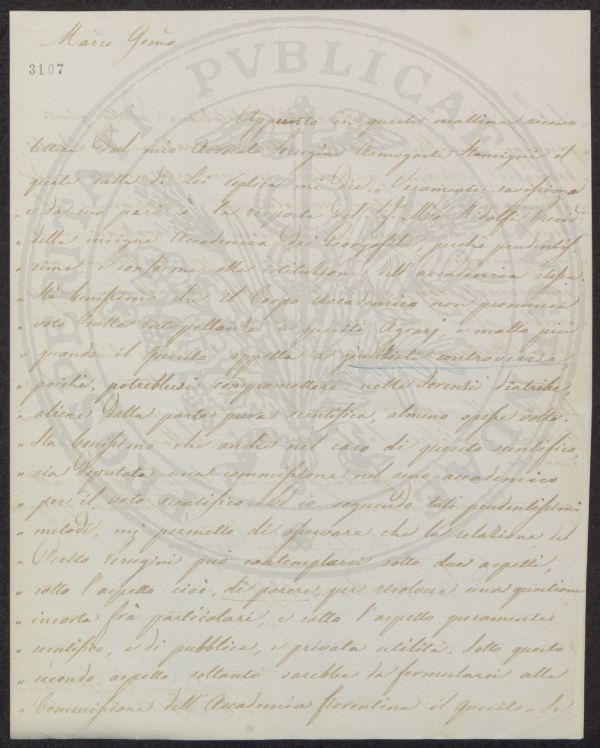 Marco Gemo
3107
Appunto in questa mattina ricevo
lettera dal mio Avvocato Perugino il
quale sulla di Lei replica mi dice "Veramente
" e da suo pari è la risposta del Sig.r M.se Ridolfi
" della insigne Accademia dei Georgofili, perchè prudentis-
" sima, e conforme alla istituzione dell'accademia stessa.
" Sta benissimo che il Corpo Accademico non pronunci
" voto sulle a quesiti Agrarj, e molto più
" quando il quesito appella a giudiziale controversia,
" poichè, potrebbesi compromettere nelle Forensi diatribe
" aliene dalla parte pura scientifica, almeno spesse volte.
" Sta benissimo che anche nel caso di quesito scientifico,
" sia deputata una commissione nel seno accademico
" per il voto scientifico. Ed io seguendo tali prudentissimi
" metodi, mi permetto di osservare che la relazione del
" Perito Perugini può contemplarsi sotto due aspetti,
" sotto l'aspetto cioè, di parere, per risolvere una questione
" insorta frà particolari, e sotto l'aspetto puramente
" scientifico, e di pubblica, e privata utilità. Sotto questo
" secondo aspetto soltanto sarebbe da formularsi alla
" Commissione dell'Accademia fiorentina il quesito = Se